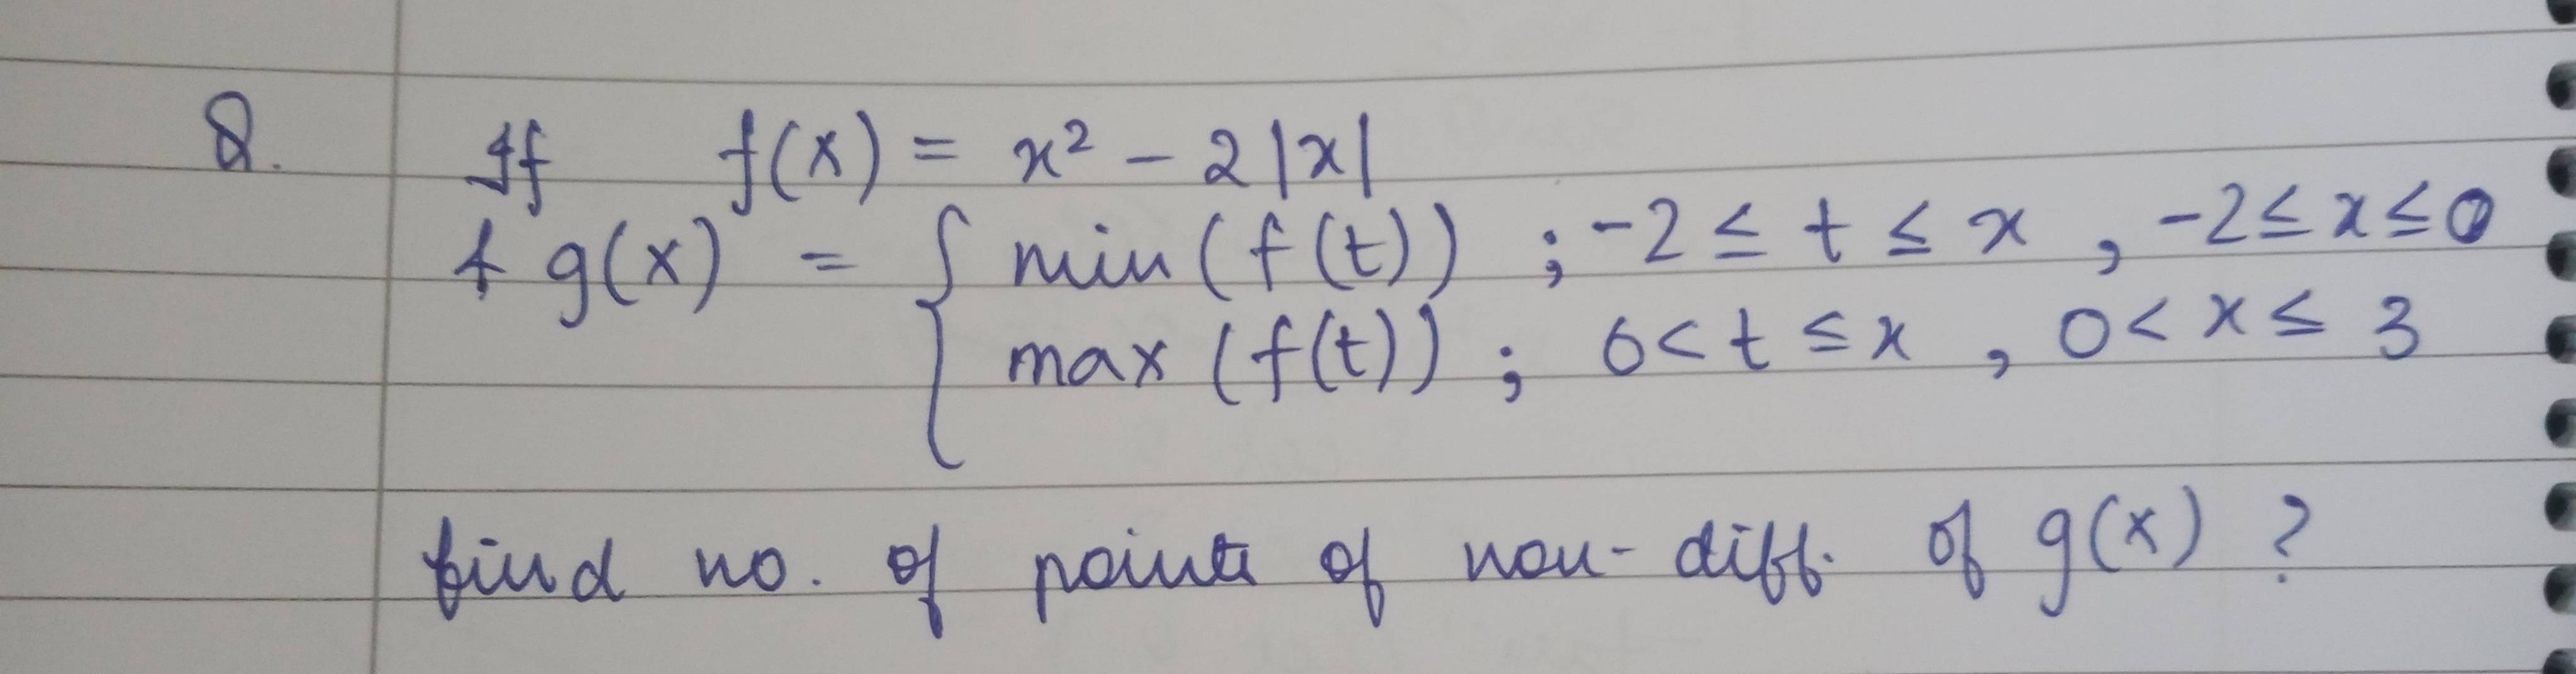 Q. If f(x) = x² - 2|x|
& g(x) = { min(f(t)) ; -2 ≤ t ≤ x , -2 ≤ x ≤ 0
max (f(t)) ; 0 < t ≤ x , 0 < x ≤ 3
find no. of points of non-diff. of g(x) ?